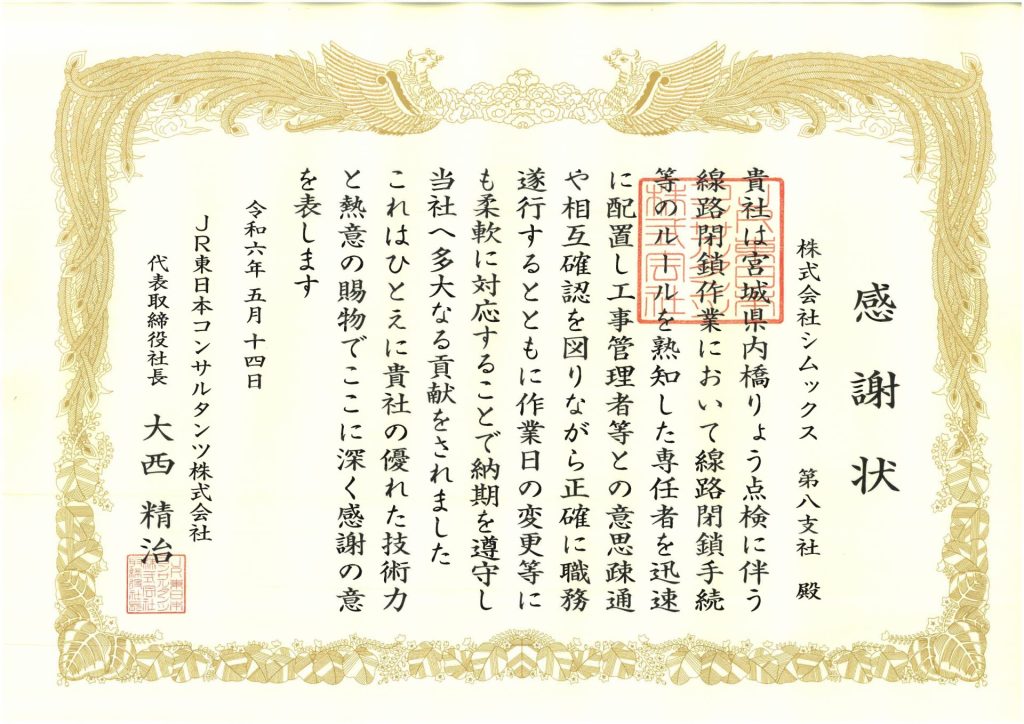 感謝状
株式会社シムックス 第八支社 殿
貴社は宮城県内橋りょう点検に伴う
線路閉鎖作業において線路閉鎖手続
等のルールを熟知した専任者を迅速
に配置し工事管理者等との意思疎通
や相互確認を図りながら正確に職務
遂行するとともに作業日の変更等に
も柔軟に対応することで納期を遵守し
当社へ多大なる貢献をされました
これはひとえに貴社の優れた技術力
と熱意の賜物でここに深く感謝の意
を表します
令和六年 五月 十四日
JR東日本コンサルタンツ株式会社
代表取締役社長 大西 精治